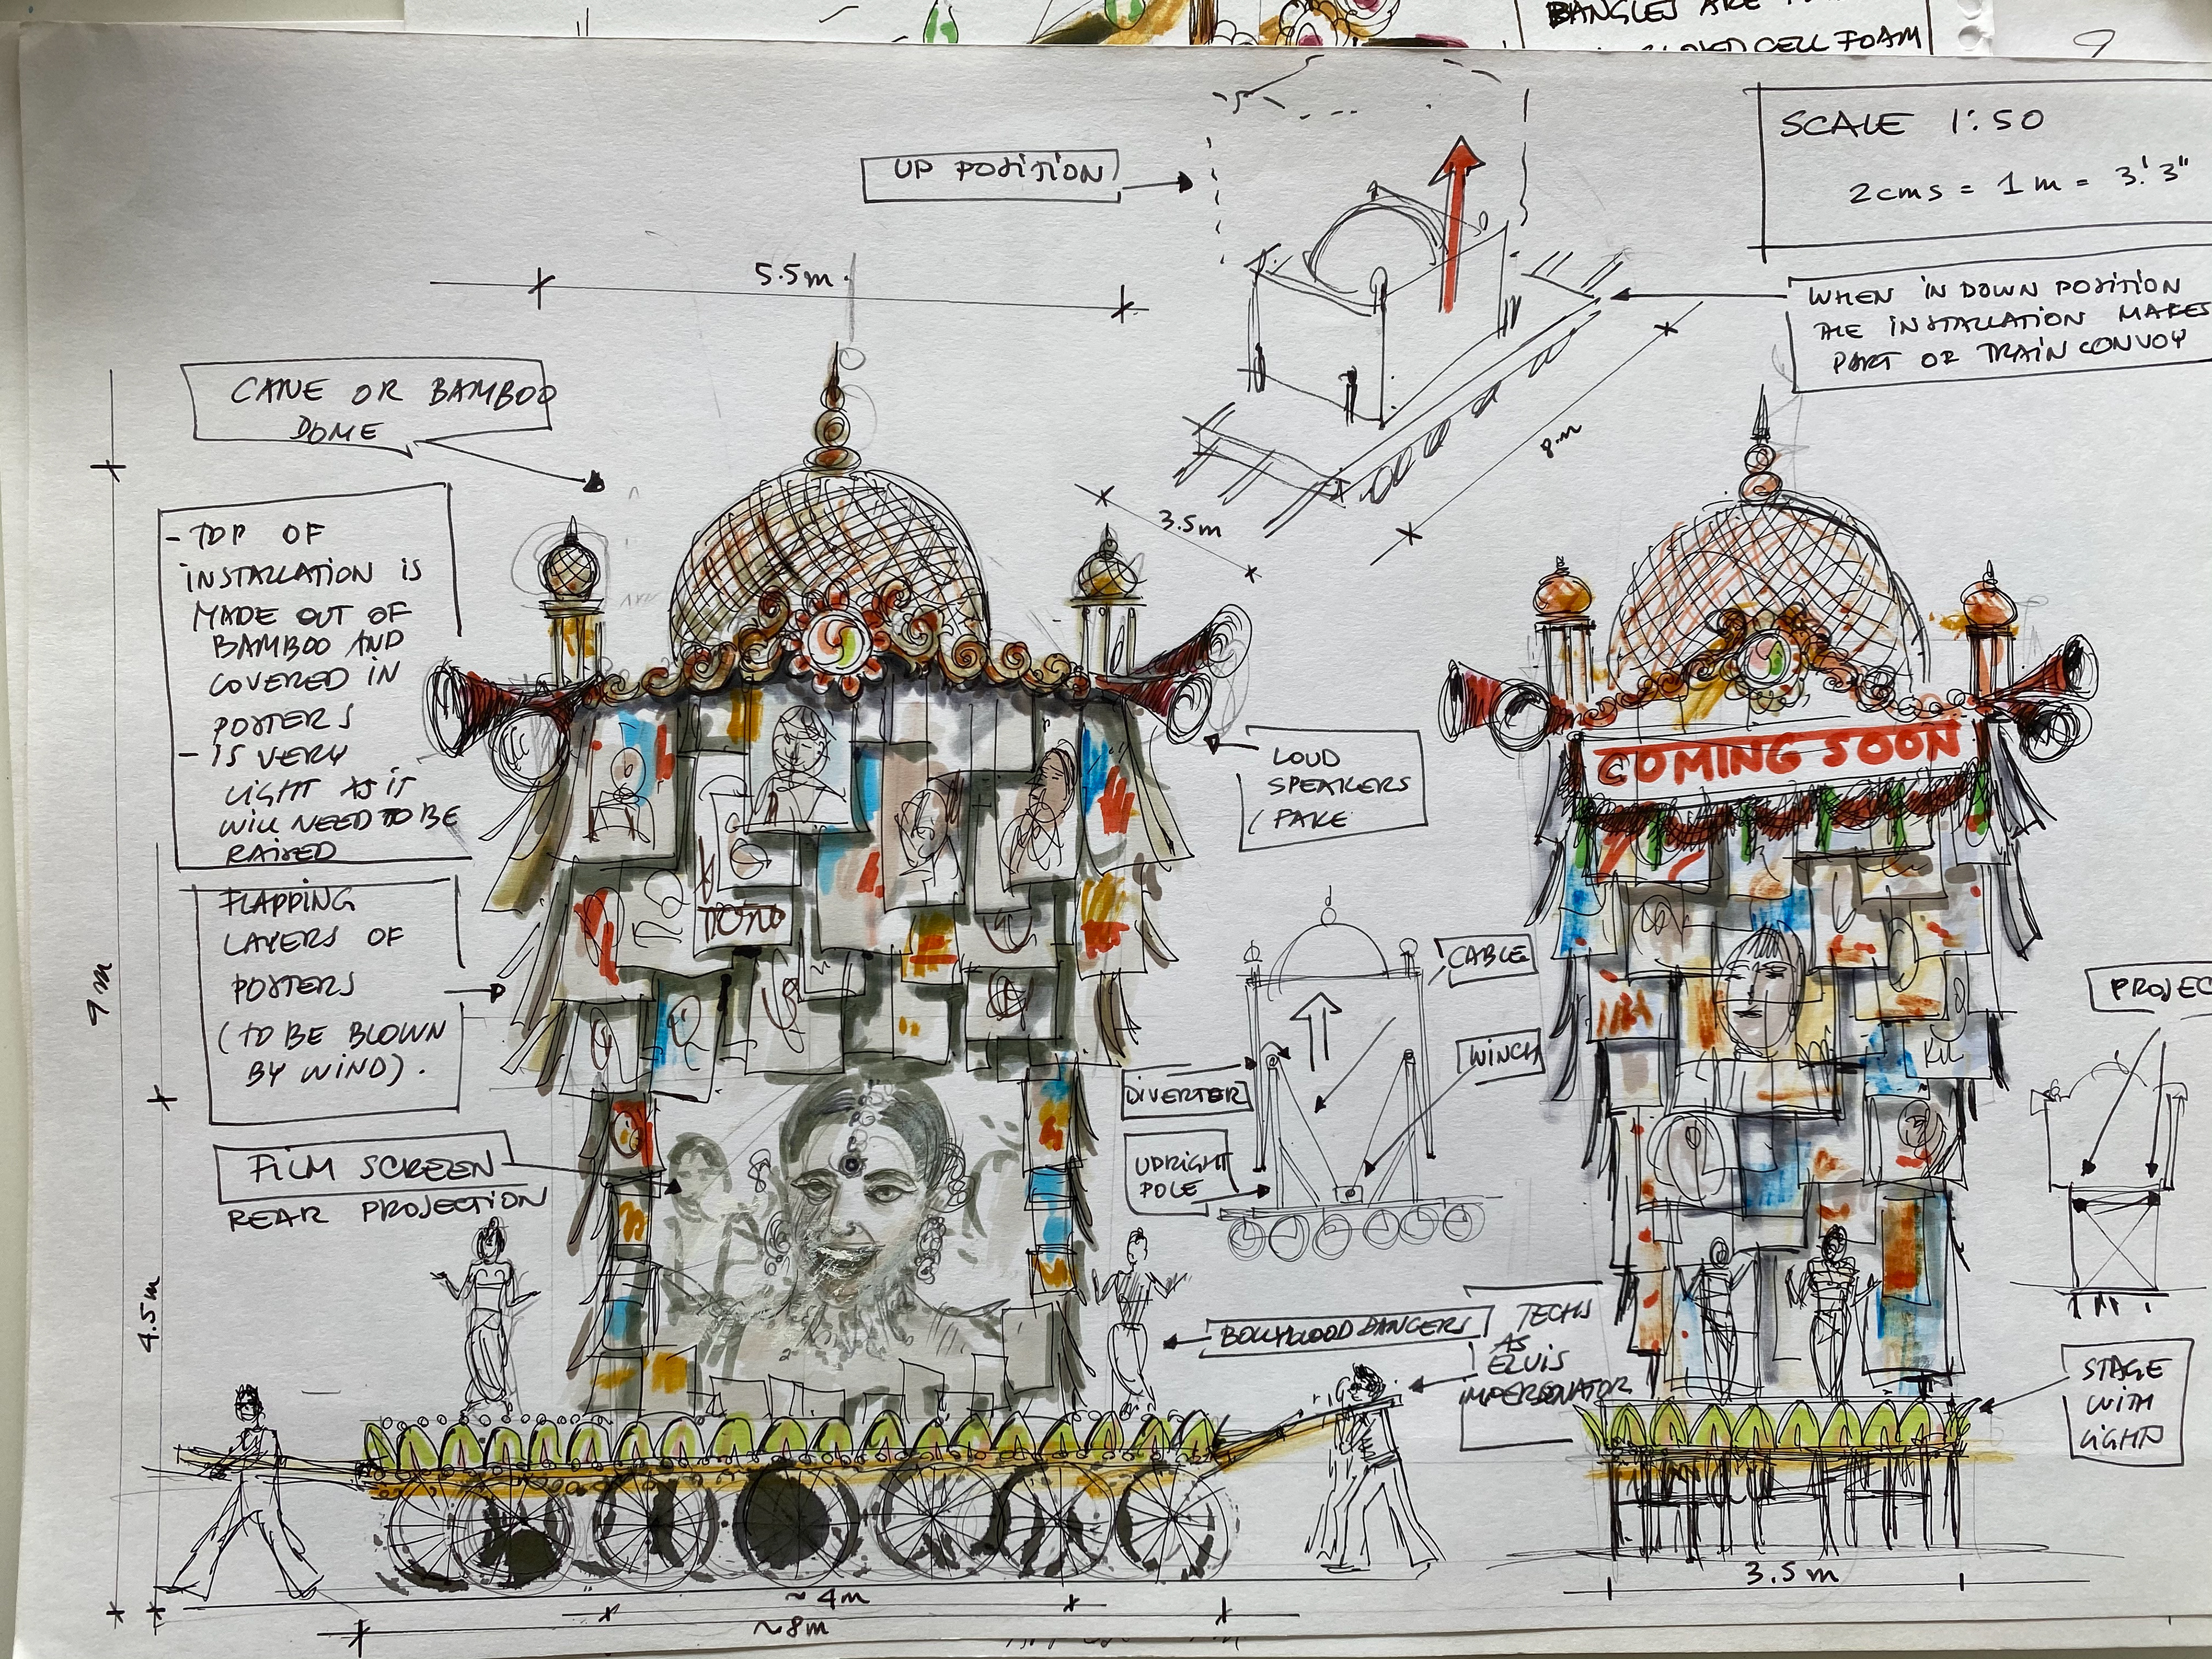 BANGLES ARE
CLOSED CELL FOAM
SCALE 1:50
2cms = 1m = 3'.3"
UP POSITION
WHEN IN DOWN POSITION
THE INSTALLATION MAKES
PART OF TRAIN CONVOY
5.5m.
8m
3.5m
CANE OR BAMBOO
DOME
- TOP OF
INSTALLATION IS
MADE OUT OF
BAMBOO AND
COVERED IN
POSTERS
- IS VERY
LIGHT AS IT
WILL NEED TO BE
RAISED
FLAPPING
LAYERS OF
POSTERS
(TO BE BLOWN
BY WIND).
FILM SCREEN
REAR PROJECTION
9m
4.5m
LOUD
SPEAKERS
(FAKE
COMING SOON
CABLE
WINCH
DIVERTER
UPRIGHT
POLE
PROJEC
BOLLYWOOD DANCERS
TECHS
AS
ELVIS
IMPERSONATOR
STAGE
WITH
LIGHTS
~4m
~8m
3.5m